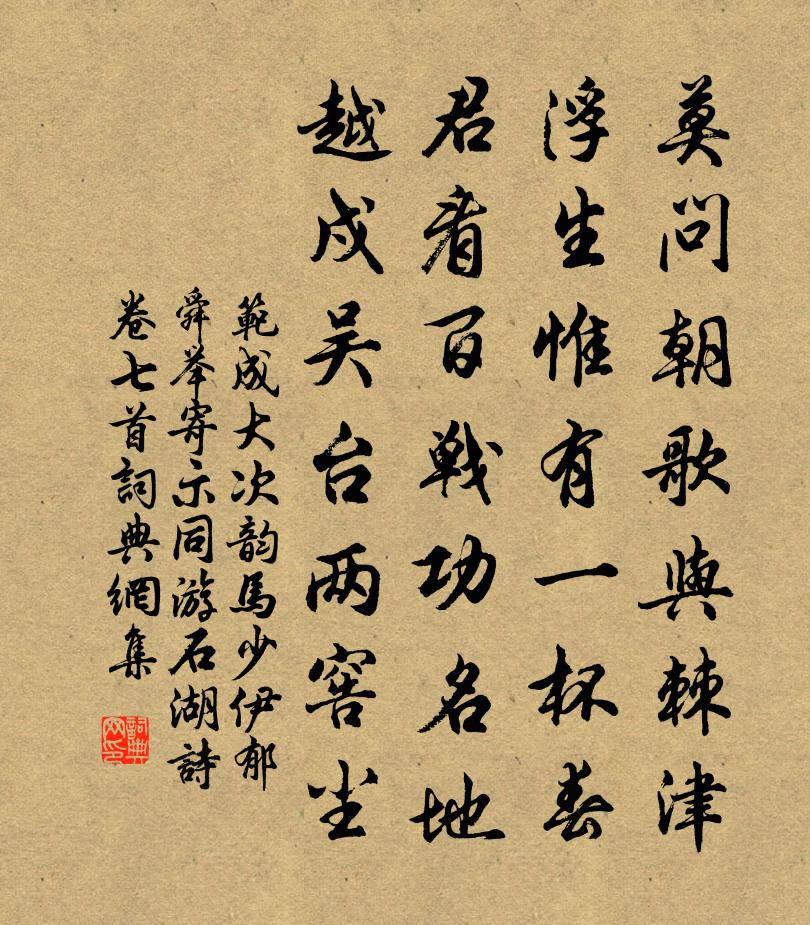 莫问朝歌與棘津
浮生惟有一杯春
君看百戰功名地
越戍吴台两窖尘
範成大次韵馬少伊郁
舜举寄示同游石湖詩
卷七首詞典網集
詞典网印